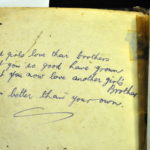 girls love their brothers
you so good have grown
you now love another girls
Brother
better than your own.